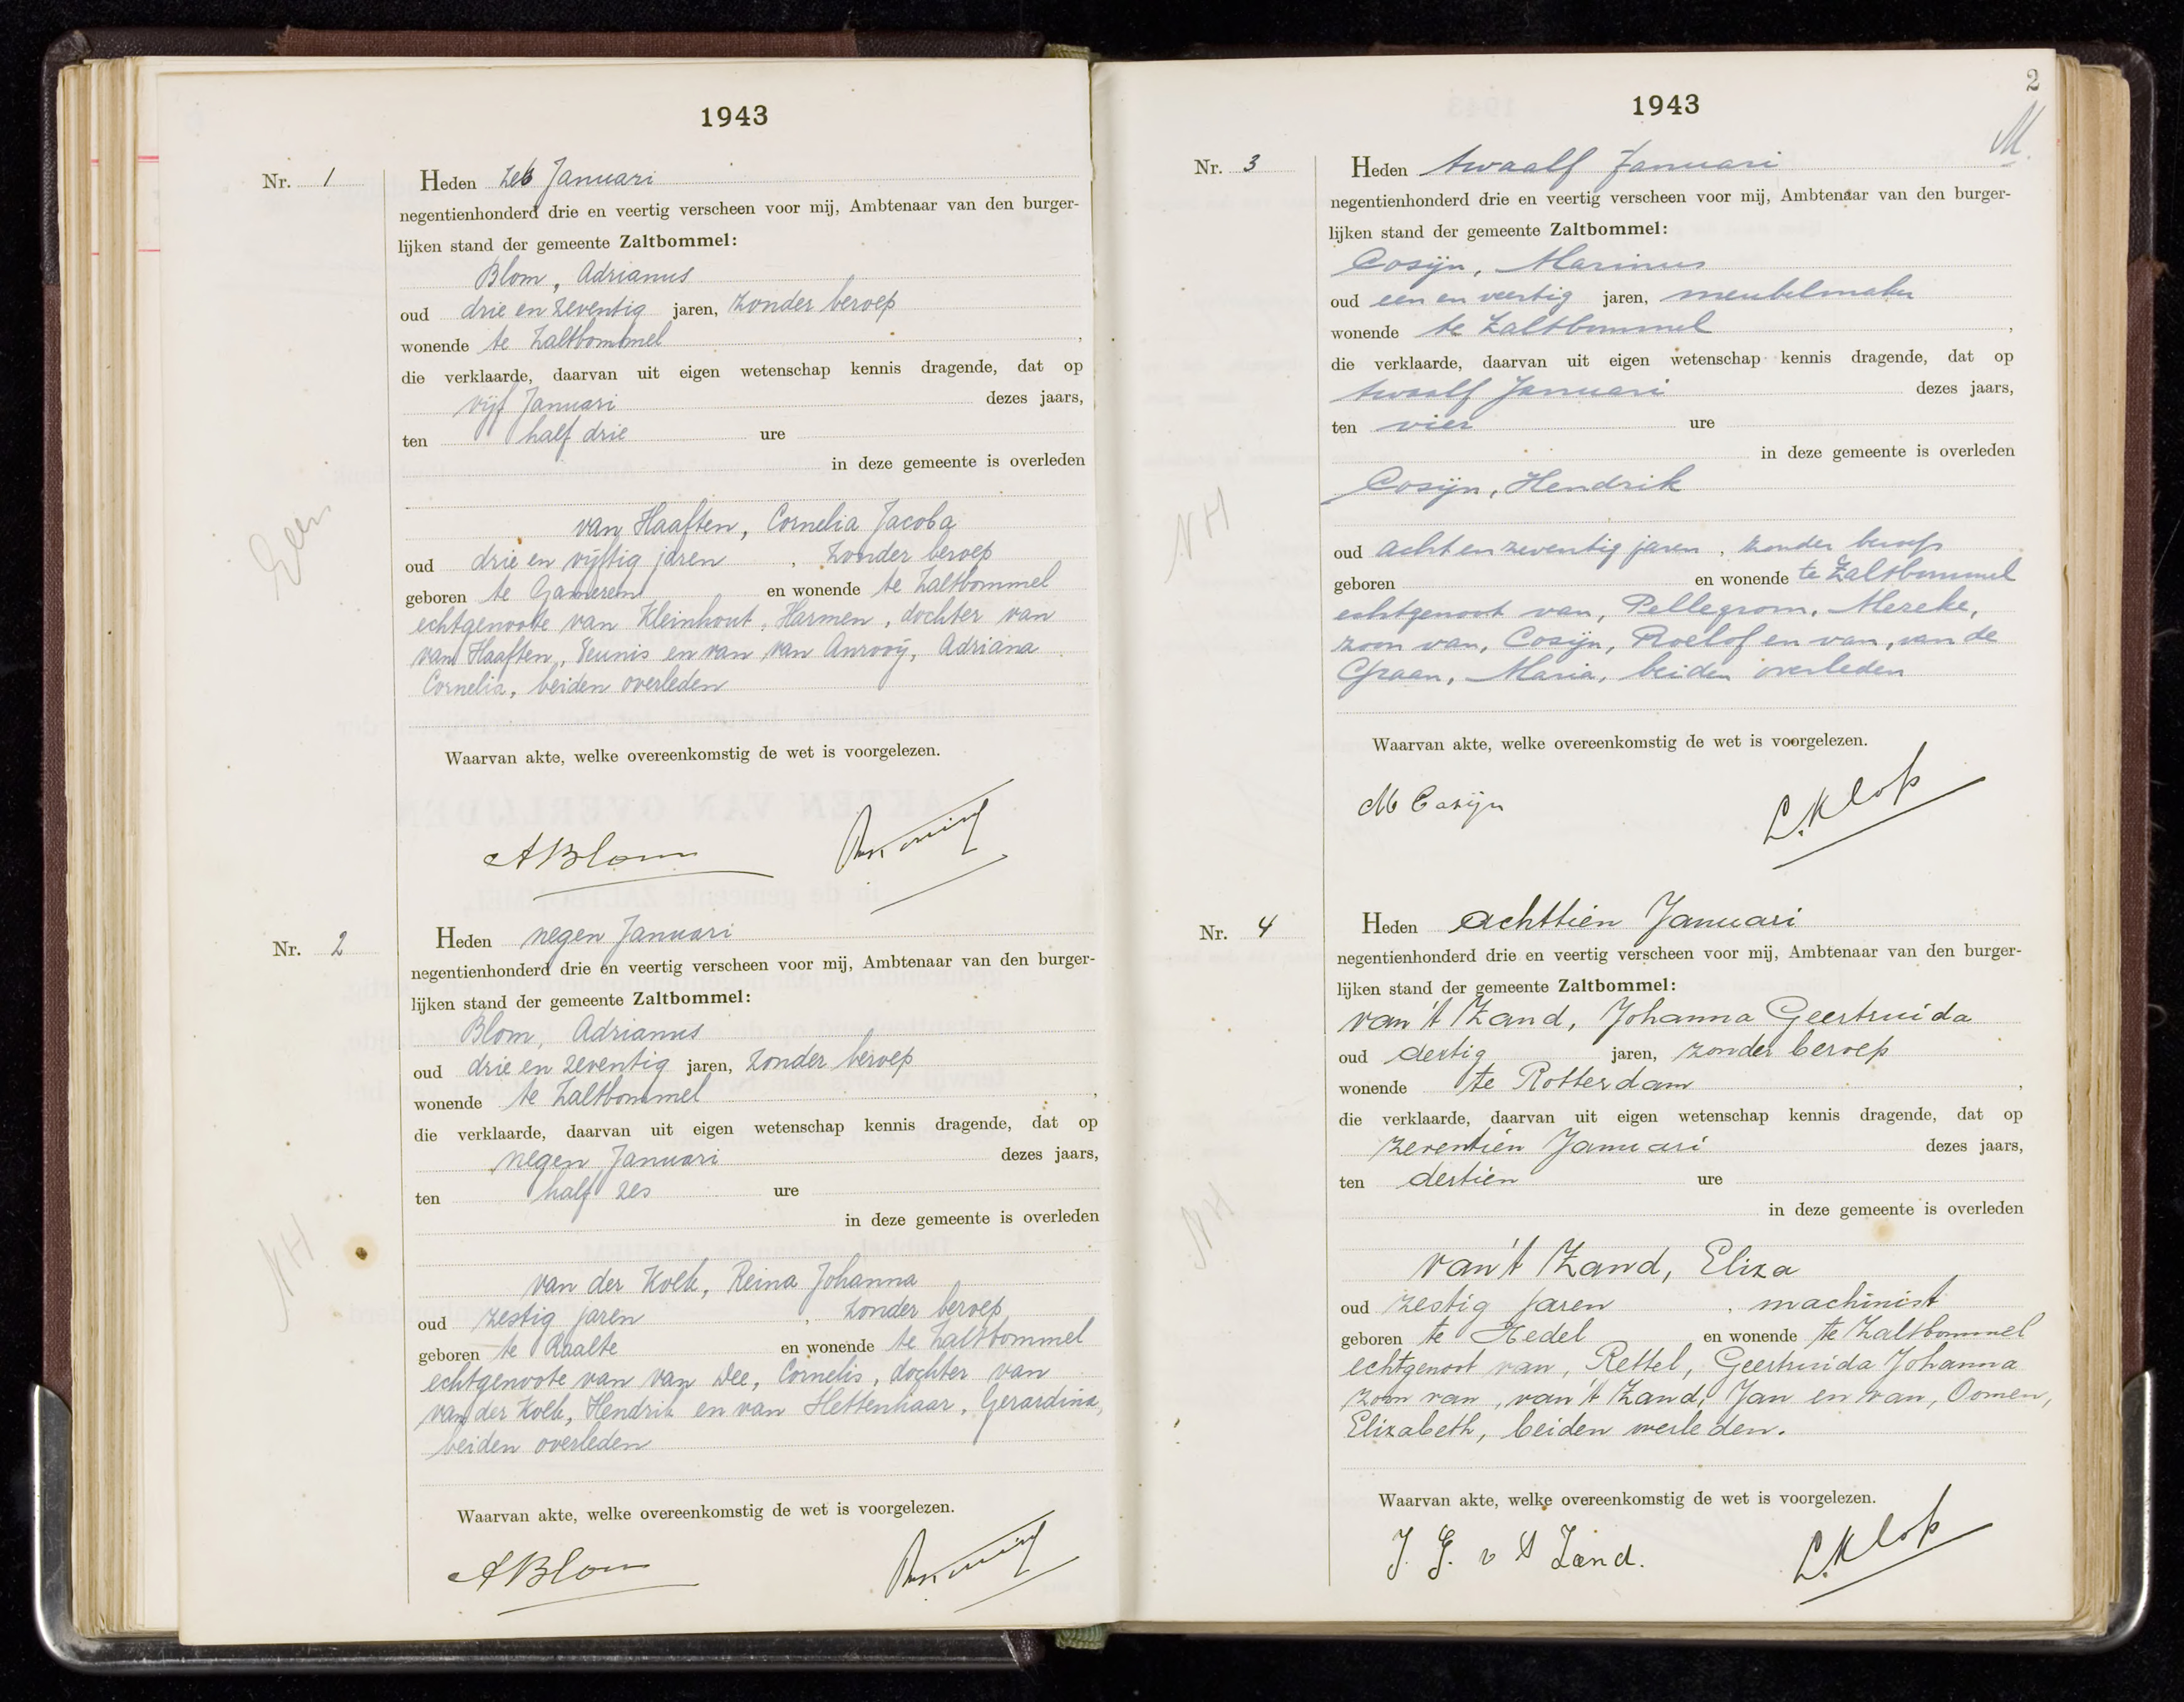 1943
Nr. 1
Heden zes Januari
negentienhonderd drie en veertig verscheen voor mij, Ambtenaar van den burger-
lijken stand der gemeente Zaltbommel:
Blom, Adrianus
oud drie en zeventig jaren, zonder beroep
wonende te Zaltbommel,
die verklaarde, daarvan uit eigen wetenschap kennis dragende, dat op
vijf Januari dezes jaars,
ten half drie ure
in deze gemeente is overleden
van Haaften, Cornelia Jacoba
oud drie en vijftig jaren, zonder beroep
geboren te Gameren en wonende te Zaltbommel
echtgenoote van Kleinhout, Harmen, dochter van
van Haaften, Teunis en van van Anrooÿ, Adriana
Cornelia, beiden overleden
Waarvan akte, welke overeenkomstig de wet is voorgelezen.
ABlom
Nr. 2
Heden negen Januari
negentienhonderd drie en veertig verscheen voor mij, Ambtenaar van den burger-
lijken stand der gemeente Zaltbommel:
Blom, Adrianus
oud drie en zeventig jaren, zonder beroep
wonende te Zaltbommel,
die verklaarde, daarvan uit eigen wetenschap kennis dragende, dat op
negen Januari dezes jaars,
ten half zes ure
in deze gemeente is overleden
NH
van der Kolk, Reina Johanna
oud zestig jaren, zonder beroep
geboren te Raalte en wonende te Zaltbommel
echtgenoote van van Wee, Cornelis, dochter van
van der Kolk, Hendrik en van Hettenhaar, Gerardina,
beiden overleden
Waarvan akte, welke overeenkomstig de wet is voorgelezen.
ABlom
2
1943
M.
Nr. 3
Heden twaalf Januari
negentienhonderd drie en veertig verscheen voor mij, Ambtenaar van den burger-
lijken stand der gemeente Zaltbommel:
Cosijn, Marinus
oud een en veertig jaren, meubelmaker
wonende te Zaltbommel,
die verklaarde, daarvan uit eigen wetenschap kennis dragende, dat op
twaalf Januari dezes jaars,
ten vier ure
in deze gemeente is overleden
Cosijn, Hendrik
NH
oud acht en zeventig jaren, zonder beroep
geboren en wonende te Zaltbommel
echtgenoot van, Pellegrom, Mereke,
zoon van, Cosijn, Roelof en van, van de
Graan, Maria, beiden overleden
Waarvan akte, welke overeenkomstig de wet is voorgelezen.
M Cosijn L. Klop
Nr. 4
Heden achttien Januari
negentienhonderd drie en veertig verscheen voor mij, Ambtenaar van den burger-
lijken stand der gemeente Zaltbommel:
van 't Zand, Johanna Geertruida
oud dertig jaren, zonder beroep
wonende te Rotterdam,
die verklaarde, daarvan uit eigen wetenschap kennis dragende, dat op
zeventien Januari dezes jaars,
ten dertien ure
in deze gemeente is overleden
NH
van 't Zand, Eliza
oud zestig jaren, machinist
geboren te Hedel en wonende te Zaltbommel
echtgenoot van, Rettel, Geertruida Johanna
zoon van, van 't Zand, Jan en van, Oomen,
Elizabeth, beiden overleden.
Waarvan akte, welke overeenkomstig de wet is voorgelezen.
J. G. v t Zand. L. Klop